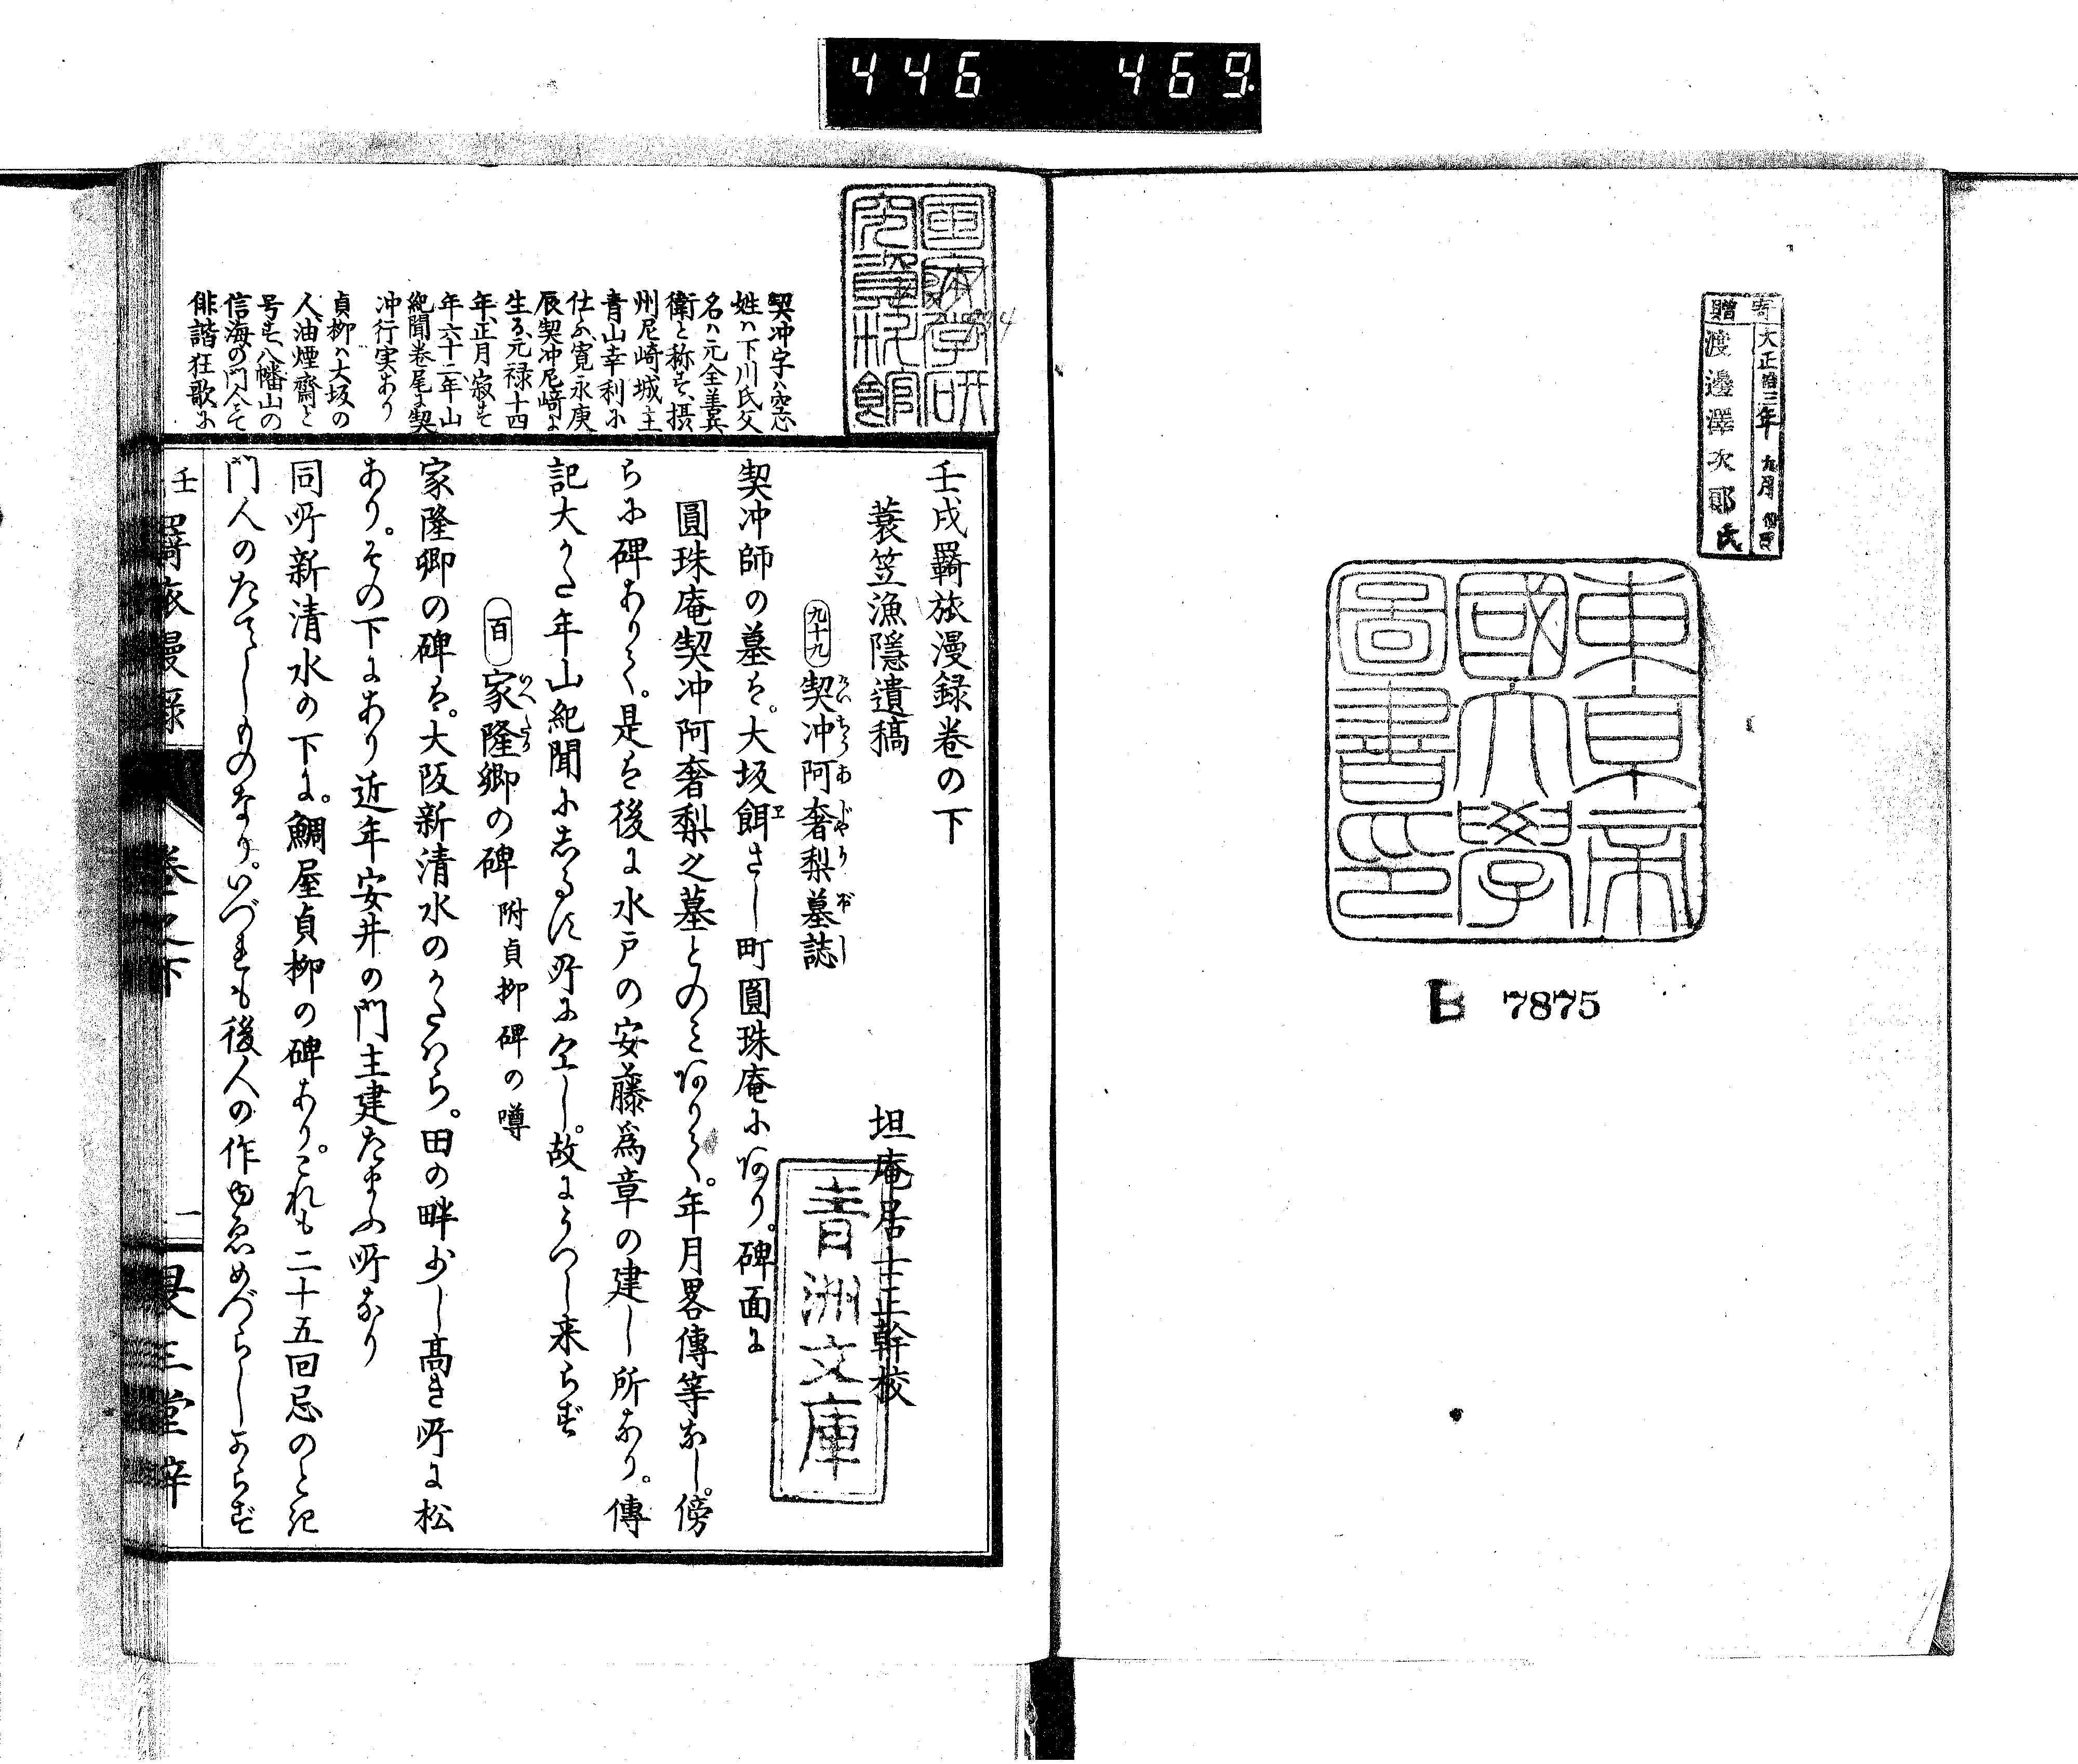 446 469.
寄贈
大正拾三年九月
渡邊澤次郎氏
東京帝
國大學
圖書印
B 7875
國文學研
究資料館
契冲字ハ空心
姓ハ下川氏父
名ハ元全善兵
衛と称す、摂
州尼崎城主
青山幸利に
仕ふ寛永庚
辰契冲尼崎に
生る、元禄十四
年、正月寂す
年六十二、年山
紀聞巻尾に契
冲行実あり
貞柳ハ大坂の
人油煙齋と
号す、八幡山の
信海の門人にて
俳諧狂歌に
壬戌羇旅漫録巻の下
蓑笠漁隱遺稿
坦庵居士正幹校
青洲文庫
九十九 契冲阿奢梨墓誌
契冲師の墓は。大坂餌さし町圓珠庵にあり。碑面に
圓珠庵契冲阿奢梨之墓とのミありて。年月畧傳等なし。傍
らに碑ありて。是は後に水戸の安藤爲章の建し所なり。傳
記大かた年山紀聞にしるす所に仝し。故にうつし来らず
百 家隆卿の碑 附貞柳碑の噂
家隆卿の碑は。大阪新清水のかたハら。田の畔少し高き所に松
あり。その下にあり近年安井の門主建たまふ所なり
同所新清水の下に。鯛屋貞柳の碑あり。これも二十五回忌のとき
門人のたてしものなり。いづれも後人の作ゆゑめづらしからず
壬戌羇旅漫録
巻之下
一
三堂梓